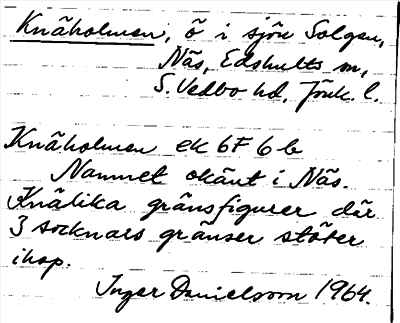 Knäholmen, ö i sjön Solgen,
Näs, Edshults sn,
S. Vedbo hd, Jönk. l.
Knäholmen ek 6F 6b
Namnet okänt i Näs.
Knälika gränsfigurer där
3 socknars gränser stöter
ihop.
Inger Danielsson 1964.